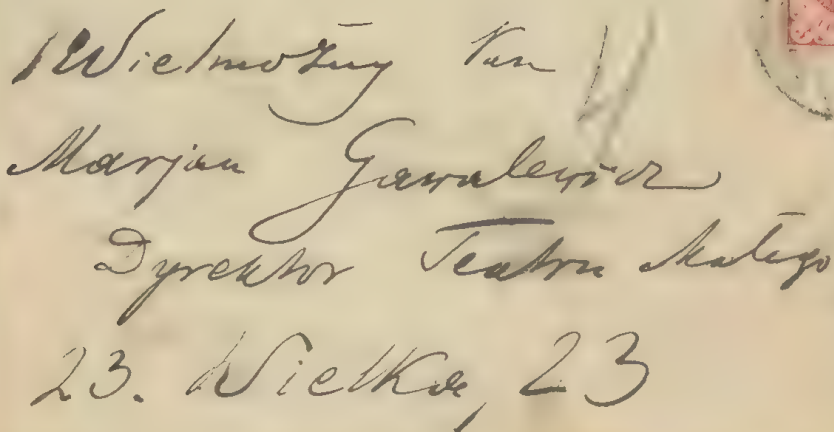 Wielmożny Pan
Marjan Gawalewicz
Dyrektor Teatru Małego
23. Wielka, 23